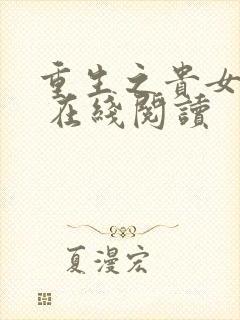 重生之貴女
在綫閱讀
夏漫宏